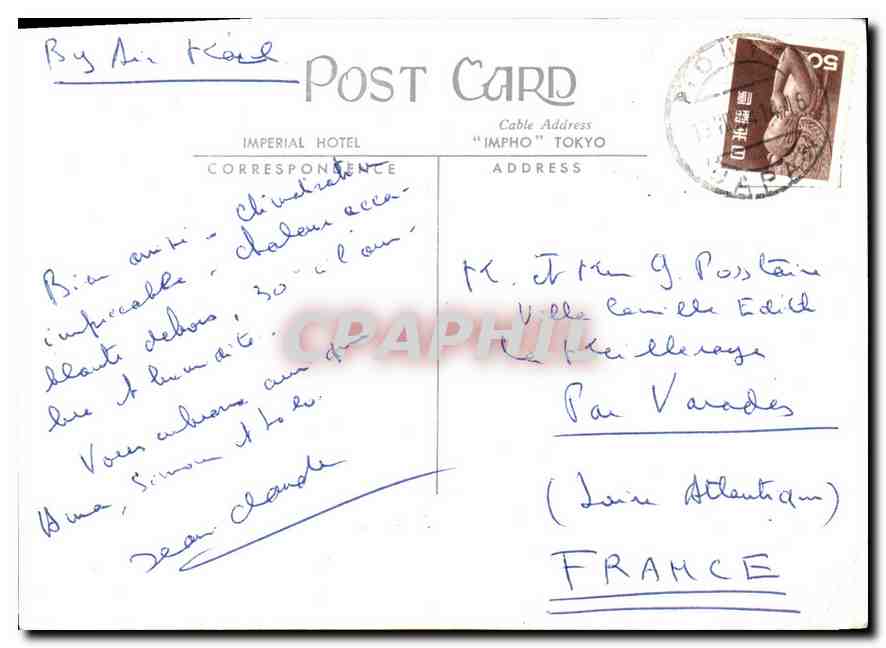 By Air Mail
POST CARD
Cable Address
IMPERIAL HOTEL "IMPHO" TOKYO
CORRESPONDENCE
ADDRESS
50
日本郵便
JAPAN
Bien arrivé - climatisation
impeccable - chaleur acca-
blante dehors, 30° à l'om-
bre et humidité.
Vous embrasse ainsi que
Simone et
Jean Claude
M. et Mme G.
Villa Camille Edith
La Meilleraye
Par Varades
(Loire Atlantique)
FRANCE
CPAPHIL